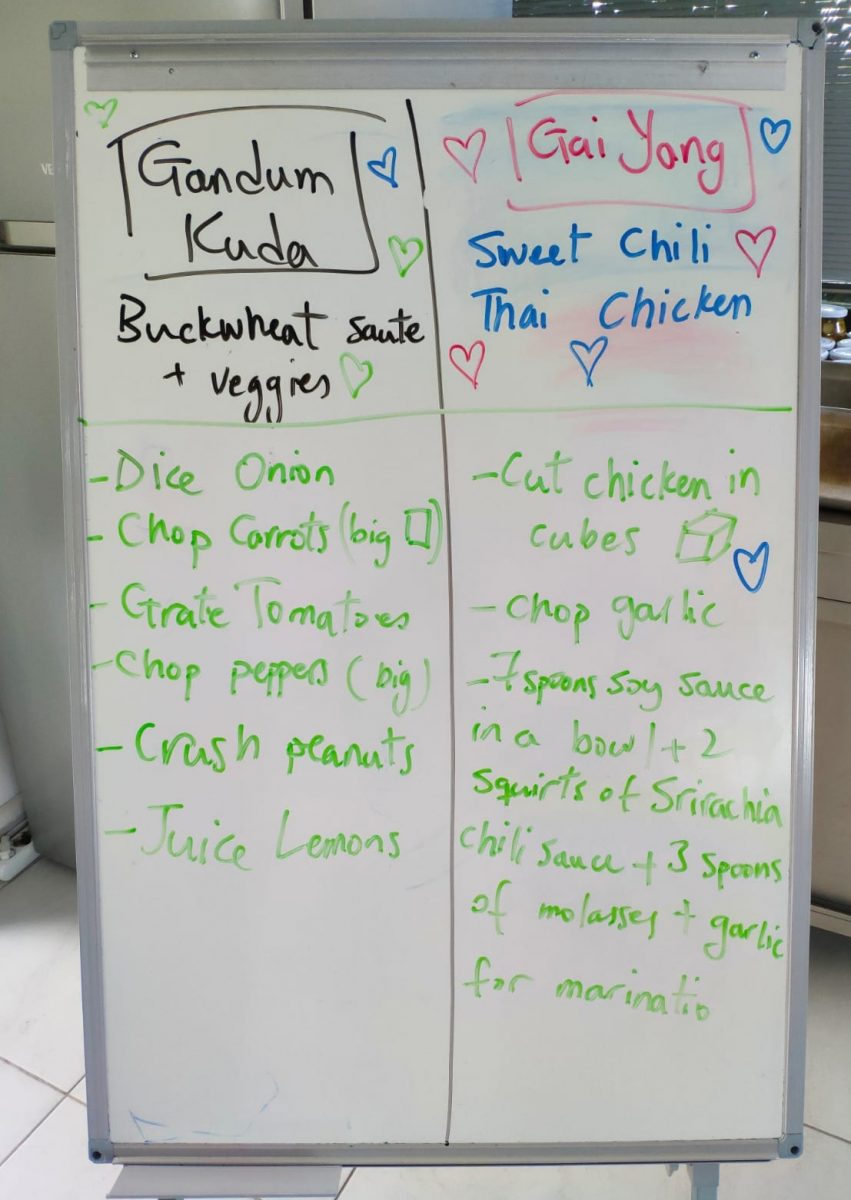 Gandum
Kuda
Buckwheat saute
+ veggies
- Dice Onion
- Chop Carrots (big □)
- Grate Tomatoes
- Chop peppers (big)
- Crush peanuts
- Juice Lemons
Gai Yang
Sweet Chili
Thai Chicken
- Cut chicken in
cubes
- Chop garlic
- 7 spoons soy sauce
in a bowl + 2
squirts of Srirachia
chili sauce + 3 spoons
of molasses + garlic
for marinatio